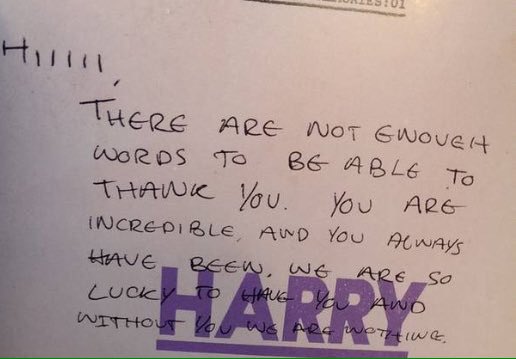 HIIIIII,
THERE ARE NOT ENOUGH
WORDS TO BE ABLE TO
THANK YOU. YOU ARE
INCREDIBLE, AND YOU ALWAYS
HAVE BEEN. WE ARE SO
LUCKY TO HAVE YOU AND
WITHOUT YOU WE ARE NOTHING.
HARRY